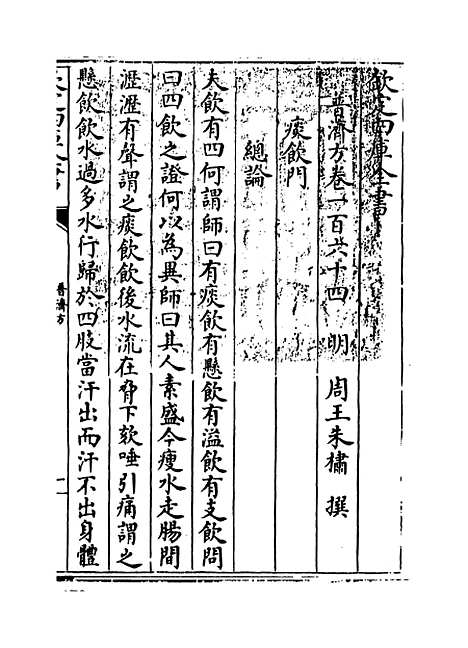 欽定四庫全書
普濟方卷一百六十四　明　周王朱橚　撰
痰飲門
總論
夫飲有四何謂師曰有痰飲有懸飲有溢飲有支飲問
曰四飲之證何以為異師曰其人素盛今瘦水走腸間
瀝瀝有聲謂之痰飲飲後水流在脅下欬唾引痛謂之
懸飲飲水過多水行歸於四肢當汗出而汗不出身體
普濟方
一